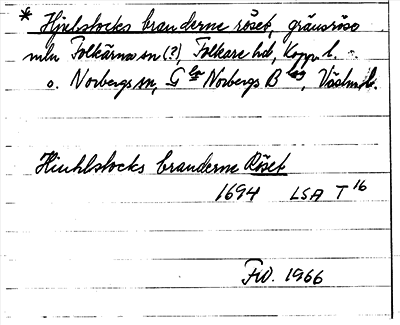 * Hjulstocks branderne röset, gränsröse
mln Folkärna sn (?), Folkare hd, Kopp. l.
o. Norbergs sn, Norbergs B, Västm. l.
Hiuhlstocks branderne Röset
1694 LSA T 16
Fid. 1966